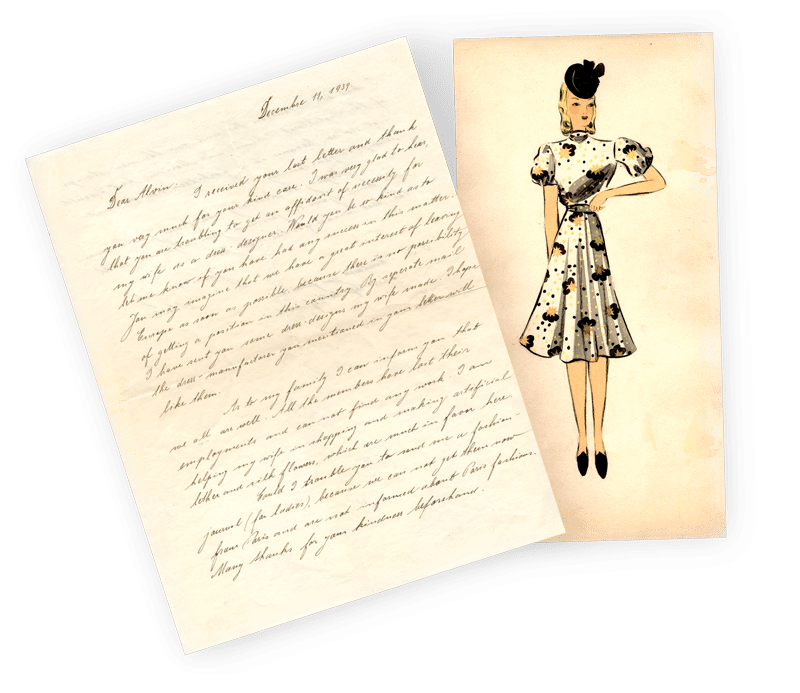 Decembre 11, 1939.
Dear Alvin: I received your last letter and thank
you very much for your kind care. I was very glad to hear,
that you are troubling to get an affidavit of necessity for
my wife as a dress-designer. Would you be so kind as to
let me know if you have had any success in this matter.
You may imagine that we have a great interest of leaving
Europe as soon as possible because there is no possibility
of getting a position in this country. By seperate mail
I have sent you some dress-designs my wife made. I hope
the dress-manufacturer you mentioned in your letter will
like them.
As to my family I can inform you that
we all are well. All the members have lost their
employments and can not find any work. I am
helping my wife in shopping and making artificial
lether and silk flowers, which are much in favor here.
Could I trouble you to send me a fashion-
journal (for ladies), because we can not get them now
from Paris and are not informed about Paris fashions.
Many thanks for your kindness beforehand.